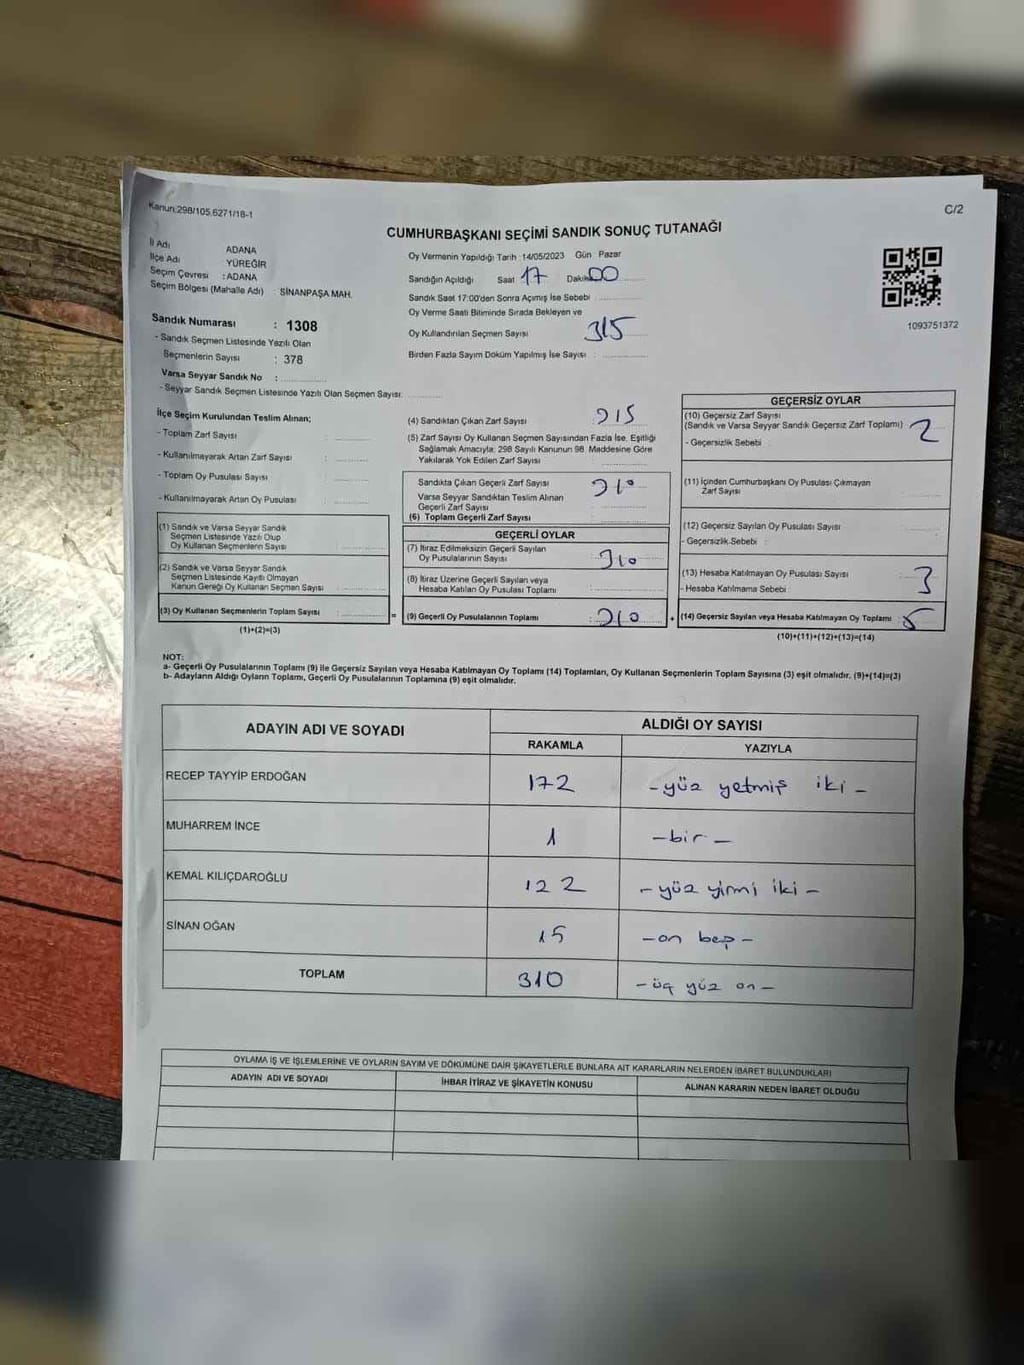 Kanun:298/105,6271/18-1
C/2
CUMHURBAŞKANI SEÇİMİ SANDIK SONUÇ TUTANAĞI
İl Adı ADANA
İlçe Adı YÜREĞİR
Seçim Çevresi : ADANA
Seçim Bölgesi (Mahalle Adı) : SİNANPAŞA MAH.
Sandık Numarası : 1308
- Sandık Seçmen Listesinde Yazılı Olan
Seçmenlerin Sayısı : 378
Varsa Seyyar Sandık No :
- Seyyar Sandık Seçmen Listesinde Yazılı Olan Seçmen Sayısı:
Oy Vermenin Yapıldığı Tarih 14/05/2023 Gün Pazar
Sandığın Açıldığı Saat 17 Dakika 00
Sandık Saat 17:00'den Sonra Açımış İse Sebebi
Oy Verme Saati Bitiminde Sırada Bekleyen ve
Oy Kullandırılan Seçmen Sayısı 315
Birden Fazla Sayım Döküm Yapılmış İse Sayısı :
1093751372
İlçe Seçim Kurulundan Teslim Alınan;
- Toplam Zarf Sayısı :
- Kullanılmayarak Artan Zarf Sayısı :
- Toplam Oy Pusulası Sayısı :
- Kullanılmayarak Artan Oy Pusulası :
(1) Sandık ve Varsa Seyyar Sandık
Seçmen Listesinde Yazılı Olup
Oy Kullanan Seçmenlerin Sayısı :
(2) Sandık ve Varsa Seyyar Sandık
Seçmen Listesinde Kayıtlı Olmayan
Kanun Gereği Oy Kullanan Seçmen Sayısı :
(3) Oy Kullanan Seçmenlerin Toplam Sayısı : =
(1)+(2)=(3)
(4) Sandıktan Çıkan Zarf Sayısı : 315
(5) Zarf Sayısı Oy Kullanan Seçmen Sayısından Fazla İse, Eşitliği
Sağlamak Amacıyla; 298 Sayılı Kanunun 98. Maddesine Göre
Yakılarak Yok Edilen Zarf Sayısı :
Sandıkta Çıkan Geçerli Zarf Sayısı : 310
Varsa Seyyar Sandıktan Teslim Alınan
Geçerli Zarf Sayısı :
(6) Toplam Geçerli Zarf Sayısı :
GEÇERLİ OYLAR
(7) İtiraz Edilmeksizin Geçerli Sayılan
Oy Pusulalarının Sayısı : 310
(8) İtiraz Üzerine Geçerli Sayılan veya
Hesaba Katılan Oy Pusulası Toplamı :
(9) Geçerli Oy Pusulalarının Toplamı : 310 +
GEÇERSİZ OYLAR
(10) Geçersiz Zarf Sayısı
(Sandık ve Varsa Seyyar Sandık Geçersiz Zarf Toplamı) 2
- Geçersizlik Sebebi :
(11) İçinden Cumhurbaşkanı Oy Pusulası Çıkmayan
Zarf Sayısı :
(12) Geçersiz Sayılan Oy Pusulası Sayısı :
- Geçersizlik Sebebi :
(13) Hesaba Katılmayan Oy Pusulası Sayısı : 3
- Hesaba Katılmama Sebebi :
(14) Geçersiz Sayılan veya Hesaba Katılmayan Oy Toplamı : 5
(10)+(11)+(12)+(13)=(14)
NOT:
a- Geçerli Oy Pusulalarının Toplamı (9) ile Geçersiz Sayılan veya Hesaba Katılmayan Oy Toplamı (14) Toplamları, Oy Kullanan Seçmenlerin Toplam Sayısına (3) eşit olmalıdır, (9)+(14)=(3)
b- Adayların Aldığı Oyların Toplamı, Geçerli Oy Pusulalarının Toplamına (9) eşit olmalıdır.
ADAYIN ADI VE SOYADI ALDIĞI OY SAYISI
RAKAMLA YAZIYLA
RECEP TAYYİP ERDOĞAN 172 - yüz yetmiş iki -
MUHARREM İNCE 1 - bir -
KEMAL KILIÇDAROĞLU 122 - yüz yirmi iki -
SİNAN OĞAN 15 - on beş -
TOPLAM 310 - üç yüz on -
OYLAMA İŞ VE İŞLEMLERİNE VE OYLARIN SAYIM VE DÖKÜMÜNE DAİR ŞİKAYETLERLE BUNLARA AİT KARARLARIN NELERDEN İBARET BULUNDUKLARI
ADAYIN ADI VE SOYADI İHBAR İTİRAZ VE ŞİKAYETİN KONUSU ALINAN KARARIN NEDEN İBARET OLDUĞU